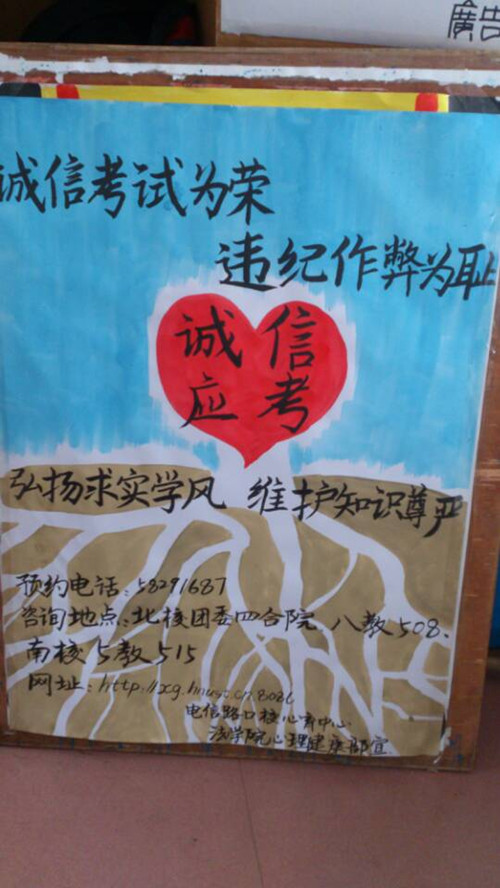 廣告
诚信考试为荣
违纪作弊为耻
诚信
应考
弘扬求实学风 维护知识尊严
预约电话:58291687
咨询地点:北校团委四合院 八教508.
南校5教515
网址:http://xg.hnust.cn:808
心育中心
法学院心理健康部宣